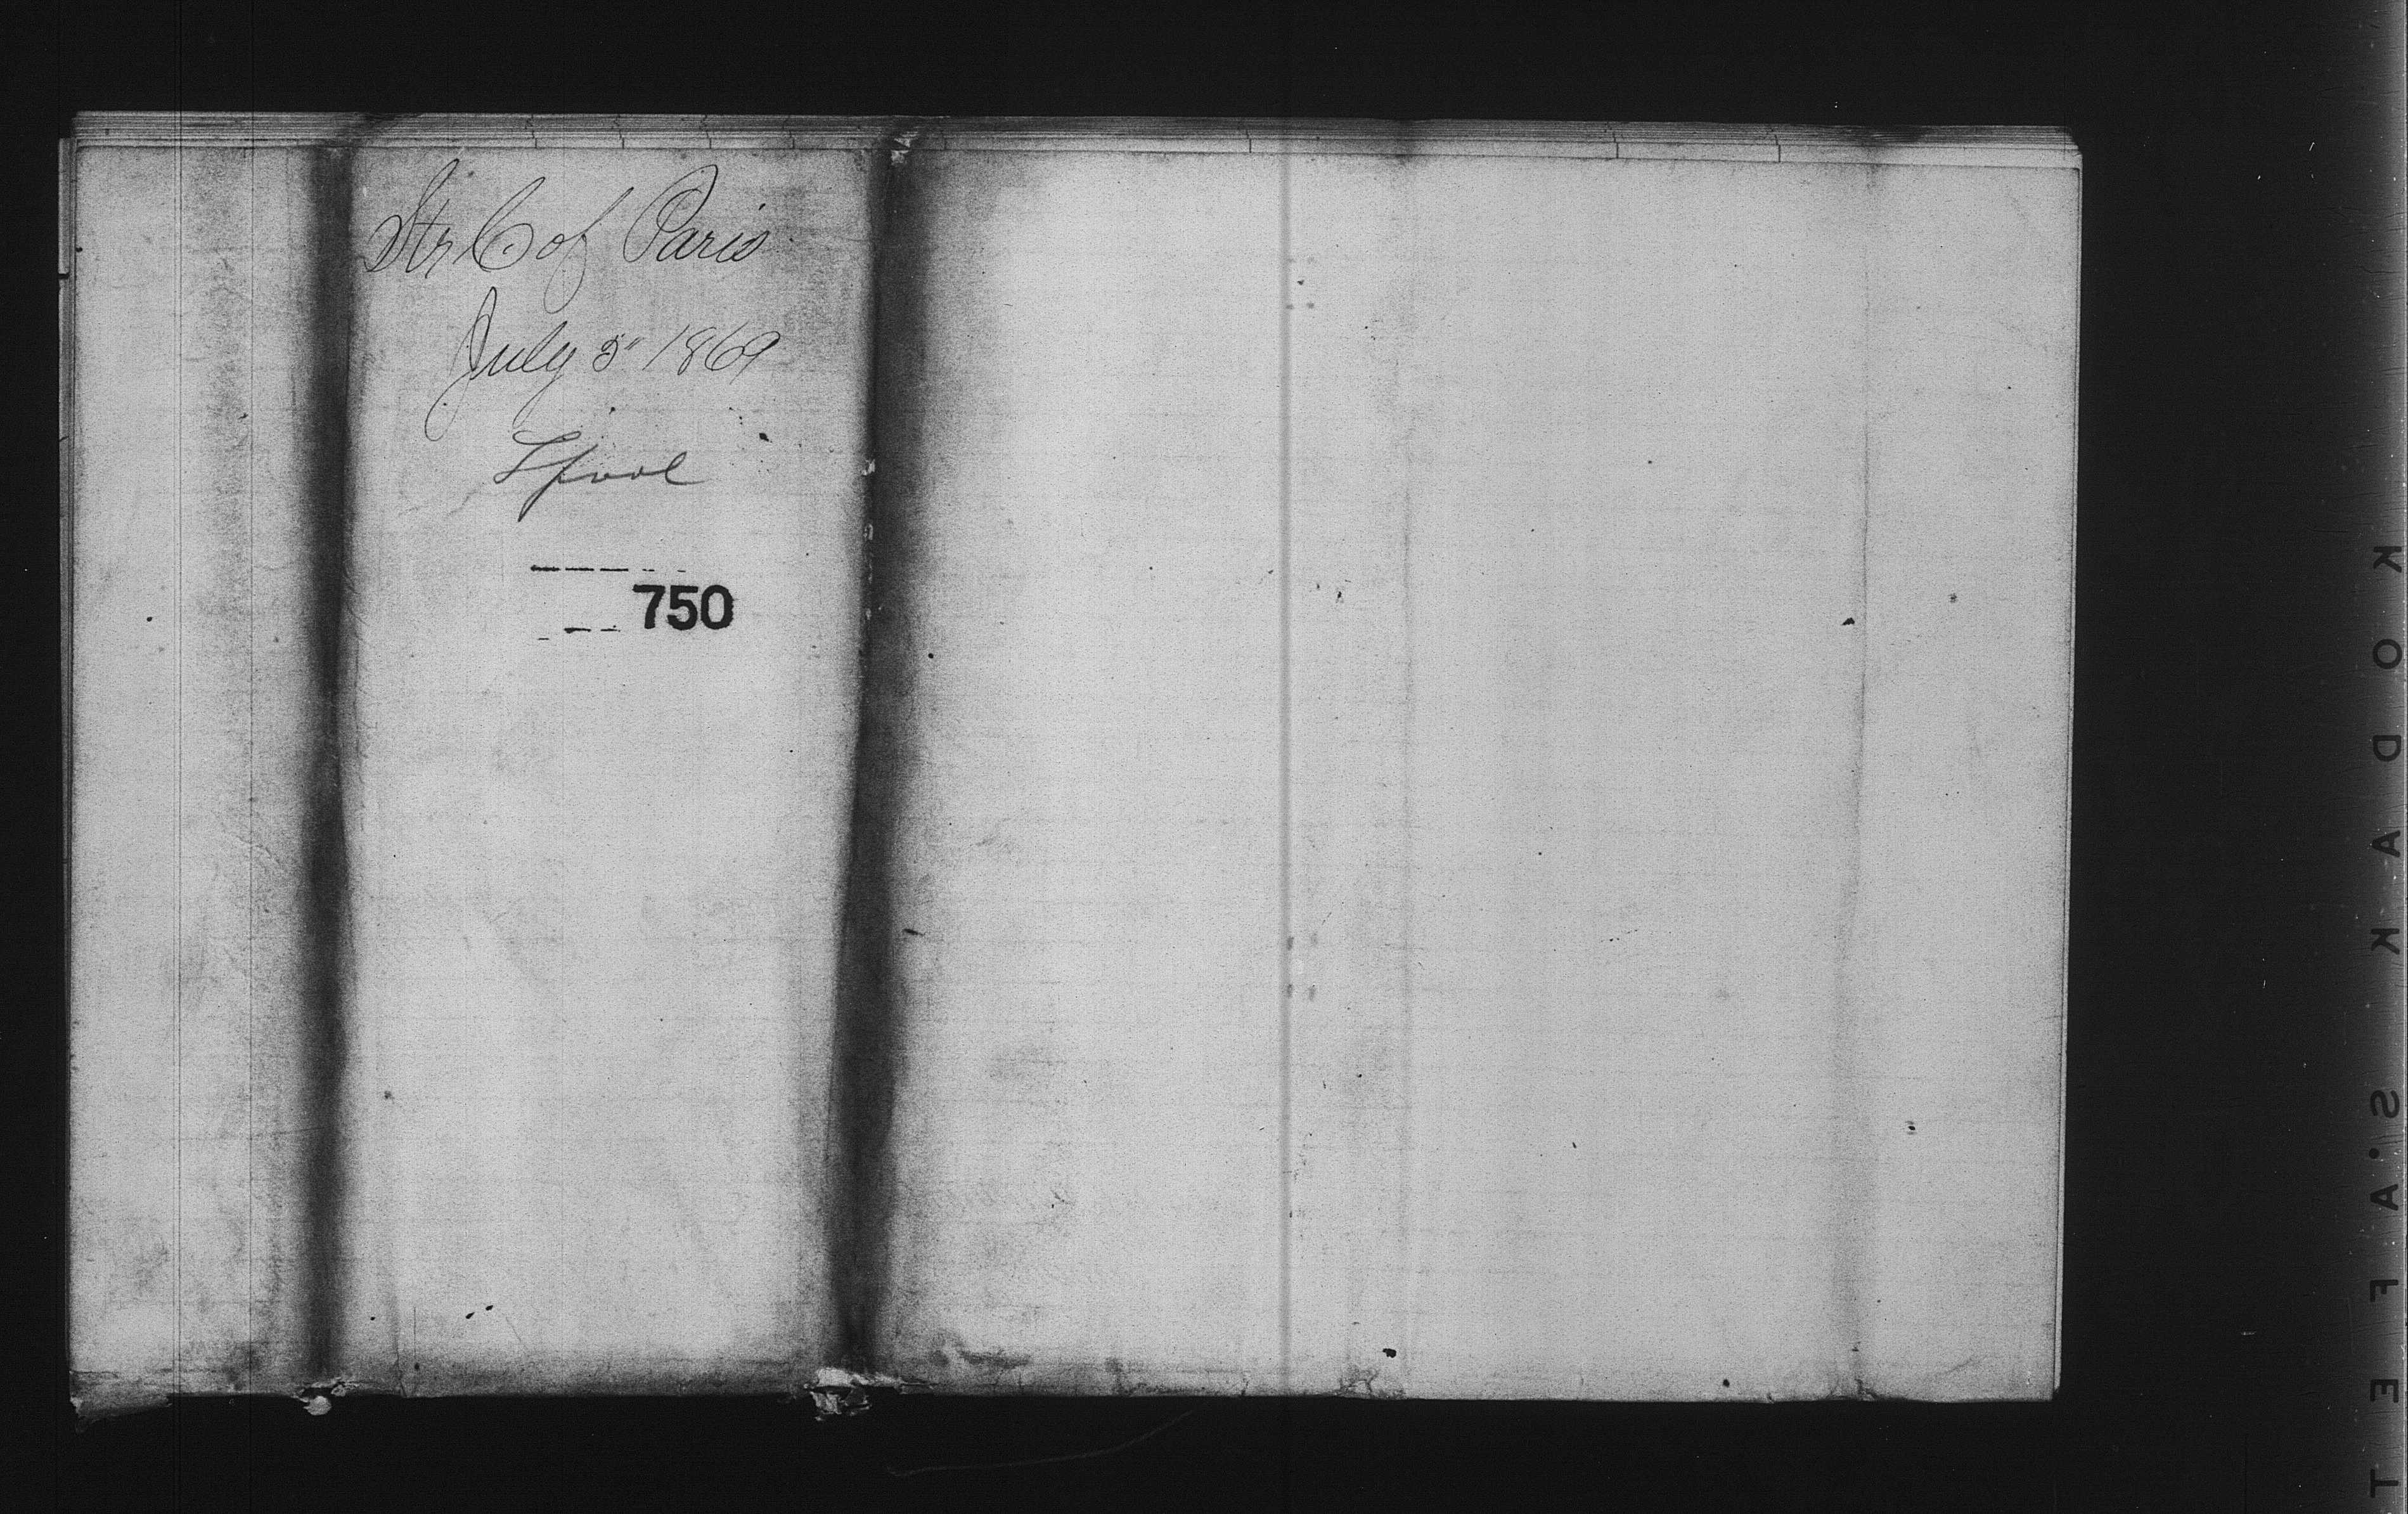 Str C of Paris
July 5" 1869
Lpool
750
KODAK S.AFET